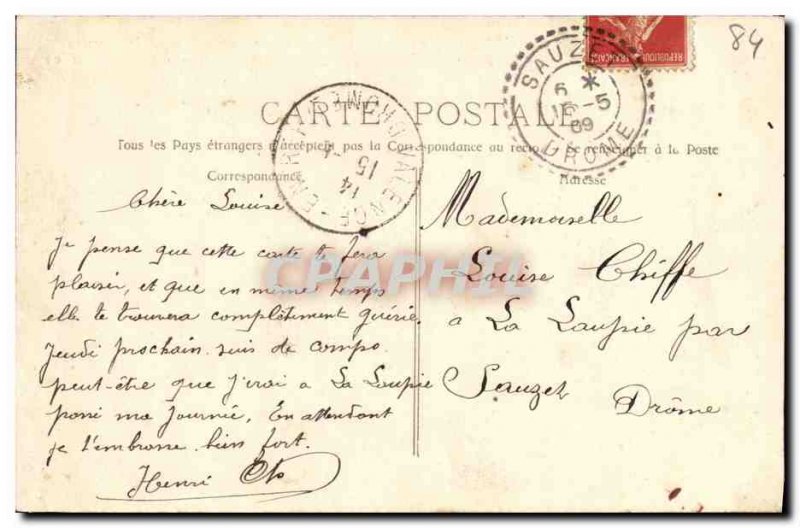 84
REPUBLIQUE FRANÇAISE
SAUZET
6 * 5
DROME
CARTE POSTALE
VALENCE
DROME
14
15
Tous les Pays étrangers n'acceptent pas la Correspondance au recto. Se renseigner à la Poste
Correspondance
Adresse
Chère Louise
Je pense que cette carte te fera
plaisir, et que en même temps
elle te trouvera complètement guérie.
Jeudi prochain suis de compo
peut-être que j'irai a La Laupie
passé ma Journée, En attendant
je t'embrasse bien fort.
Henri
Mademoiselle
Louise Chiffe
a La Laupie par
Sauzet
Drôme
CPAPHIL